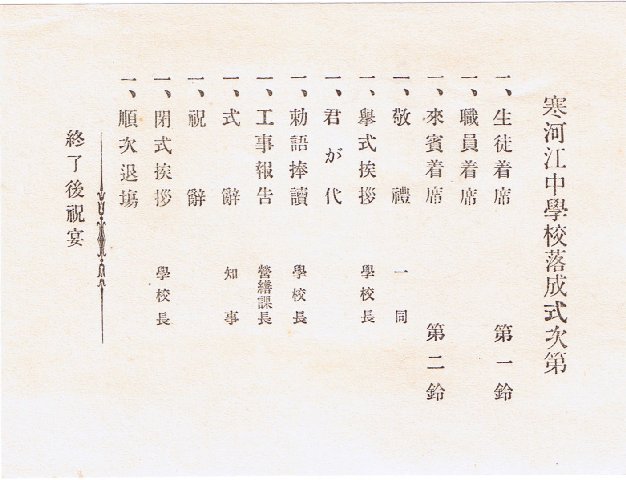 寒河江中學校落成式次第
一、生徒着席 第一鈴
一、職員着席
一、來賓着席 第二鈴
一、敬禮 一同
一、擧式挨拶 學校長
一、君が代
一、勅語捧讀 學校長
一、工事報告 營繕課長
一、式辭 知事
一、祝辭
一、閉式挨拶 學校長
一、順次退場
終了後祝宴